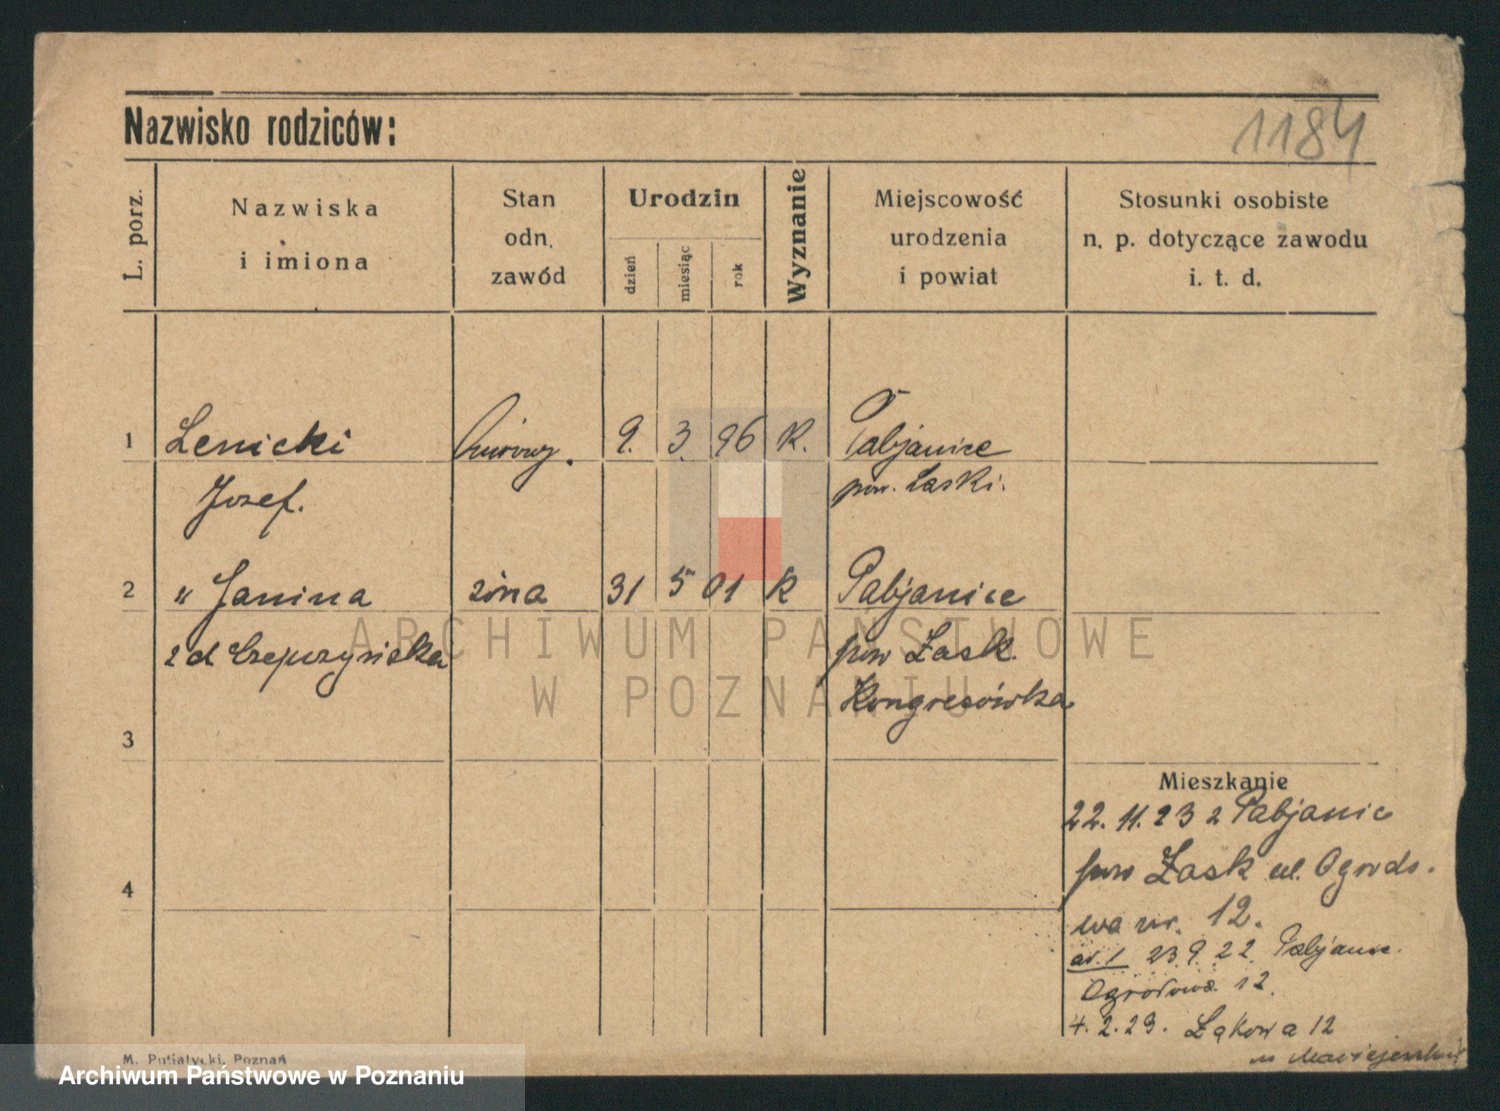 Nazwisko rodziców:
1184
L. porz.
Nazwiska
i imiona
Stan
odn.
zawód
Urodzin
dzień
miesiąc
rok
Wyznanie
Miejscowość
urodzenia
i powiat
Stosunki osobiste
n. p. dotyczące zawodu
i. t. d.
1 Lenicki 9. 3. 96 K. Pabjanice
Jozef. pow. Łaski.
2 " Janina żona 31 5 01 K Pabjanice
z d pow Łask.
Kongresówka
3
4
Mieszkanie
22. 11. 23 z Pabjanic
pow Łask ul. Ogrodo-
wa nr. 12.
ad. 1 23. 9. 22. Pabjanic.
Ogrodowa 12.
4. 2. 23. Łąkowa 12
ARCHIWUM PAŃSTWOWE
W POZNANIU
M. Putiatycki, Poznań
Archiwum Państwowe w Poznaniu